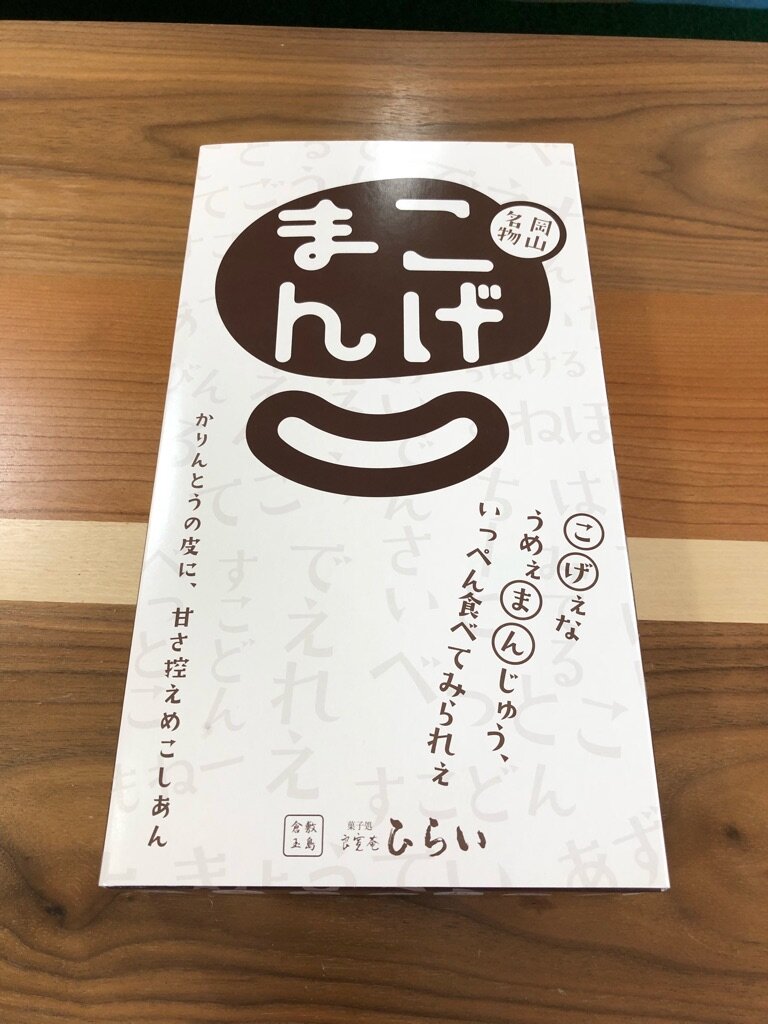 岡山
名物
こげ
まん
こげぇな
うめぇまんじゅう、
いっぺん食べてみられぇ
かりんとうの皮に、甘さ控えめこしあん
倉敷
玉島
菓子処
良寛菴
ひらい
でえれえ
すこどん